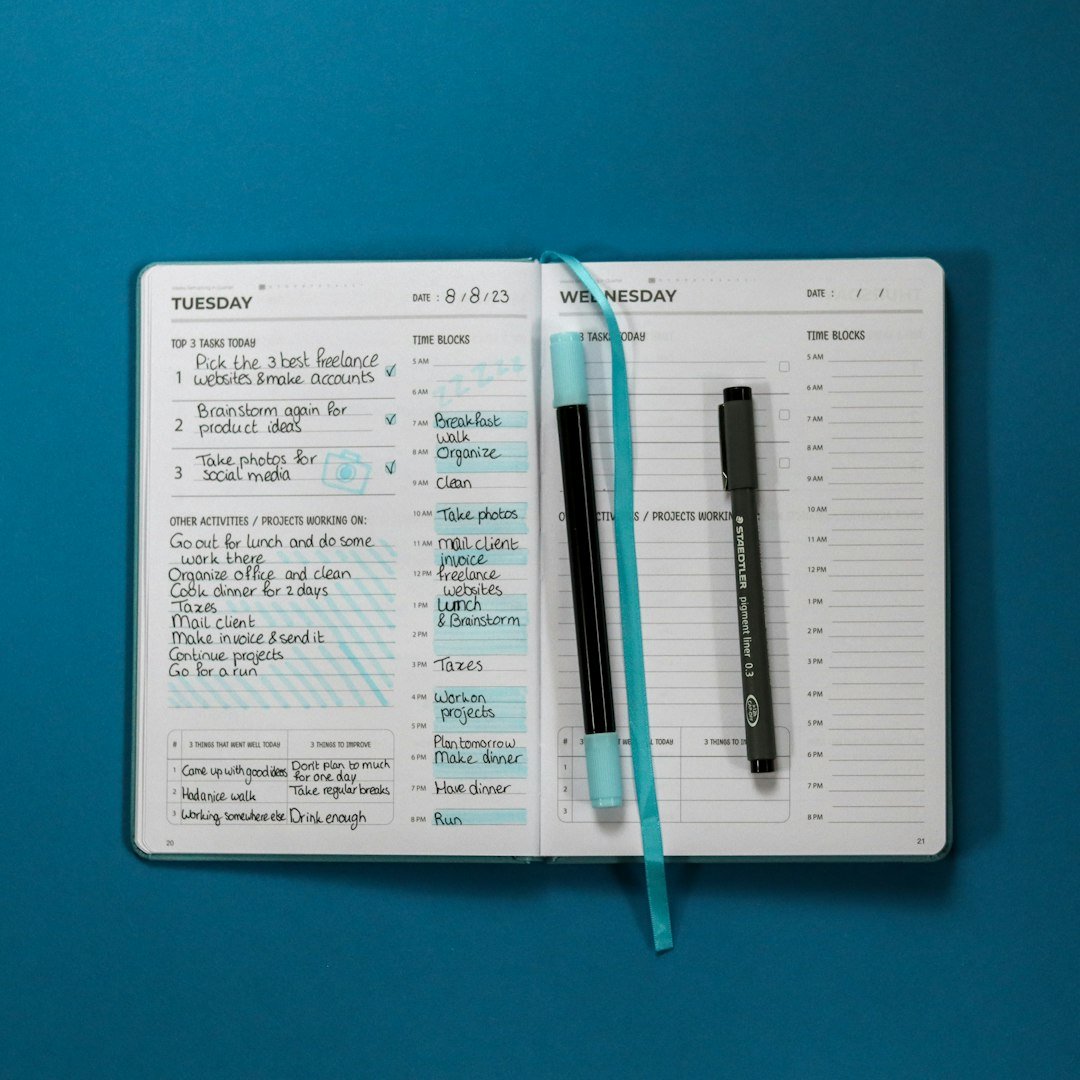 TUESDAY
DATE : 8/8/23
TOP 3 TASKS TODAY
Pick the 3 best freelance
1 websites & make accounts
Brainstorm again for
2 product ideas
Take photos for
3 social media
OTHER ACTIVITIES / PROJECTS WORKING ON:
Go out for lunch and do some
work there
Organize office and clean
Cook dinner for 2 days
Taxes
Mail client
Make invoice & send it
Continue projects
Go for a run
# 3 THINGS THAT WENT WELL TODAY 3 THINGS TO IMPROVE
1 Came up with good ideas Don't plan to much
for one day
2 Had a nice walk Take regular breaks
3 Working somewhere else Drink enough
20
TIME BLOCKS
5 AM
zz zz z
6 AM
7 AM Breakfast
walk
8 AM Organize
9 AM Clean
10 AM Take photos
11 AM mail client
invoice
12 PM freelance
websites
1 PM Lunch
& Brainstorm
2 PM
3 PM Taxes
4 PM Work on
projects
5 PM
Plan tomorrow
6 PM Make dinner
7 PM Have dinner
8 PM Run
WE NESDAY
DATE : / /
3 TASKS TODAY
O CTIVITIES / PROJECTS WORKIN
# 3 WELL TODAY 3 THINGS TO
1
2
3
TIME BLOCKS
5 AM
6 AM
7 AM
8 AM
9 AM
10 AM
11 AM
12 PM
1 PM
2 PM
3 PM
4 PM
5 PM
6 PM
7 PM
8 PM
21
STAEDTLER pigment liner 0.3